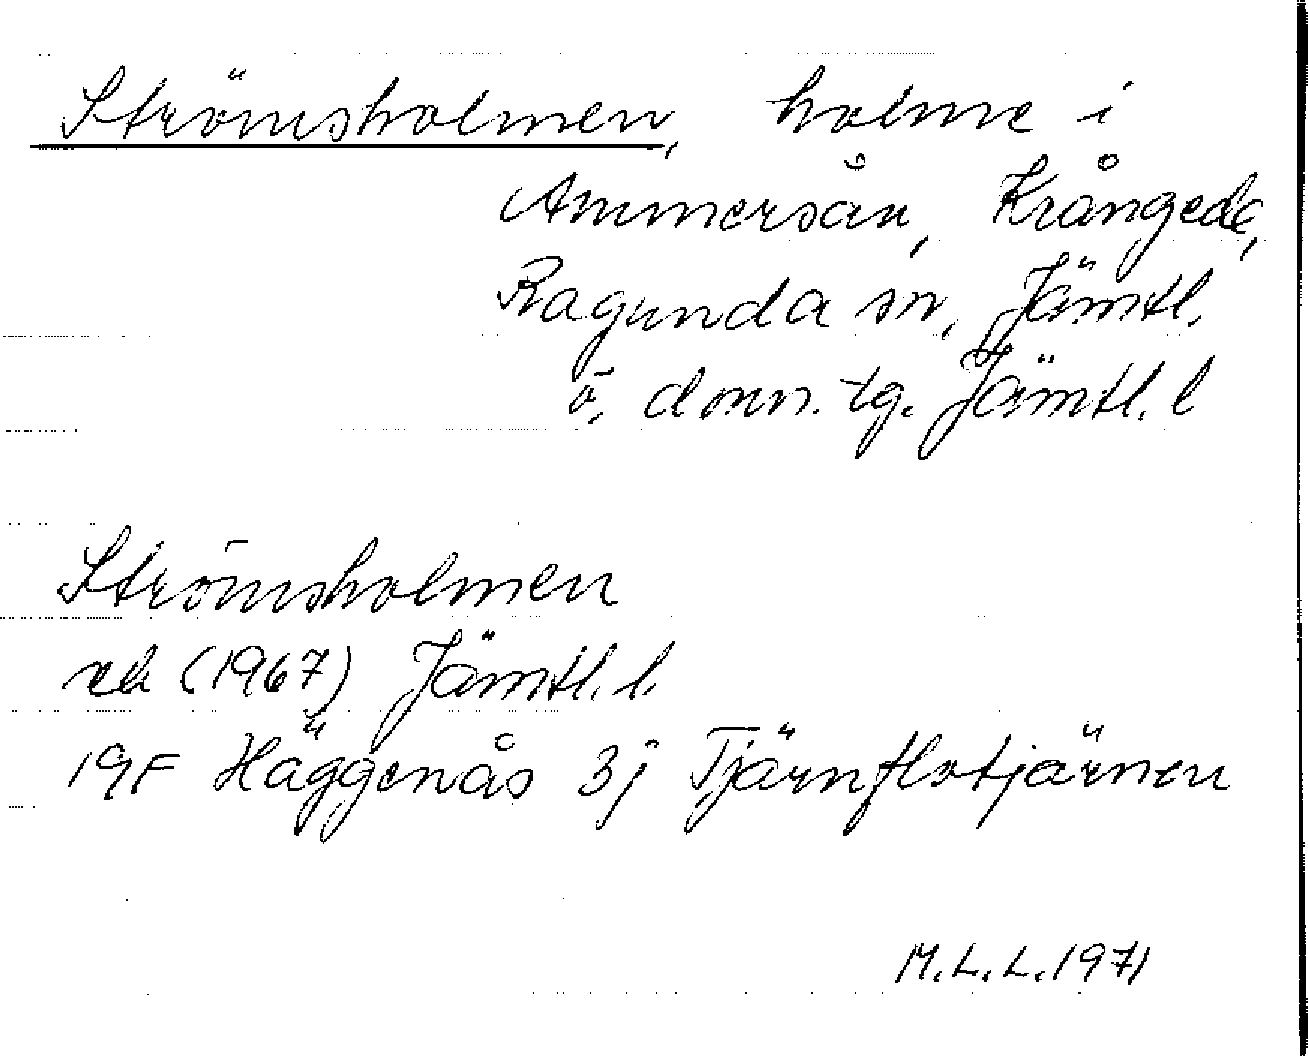 Strömsholmen, holme i
Ammersån, Krångede,
Ragunda sn, Jämtl.
ö. doms. tg. Jämtl. l
Strömsholmen
ek (1967) Jämtl. l.
19F Häggenås 3j Tjärnflotjärnen
M.L.L. 1971